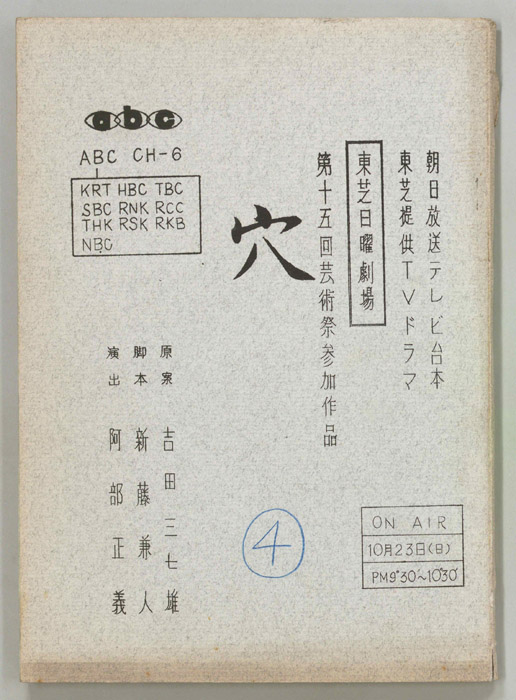 abc
ABC CH-6
KRT HBC TBC
SBC RNK RCC
THK RSK RKB
NBC
朝日放送テレビ台本
東芝提供TVドラマ
東芝日曜劇場
第十五回芸術祭参加作品
穴
原案 吉田三七雄
脚本 新藤兼人
演出 阿部正義
4
ON AIR
10月23日(日)
PM9°30'~10°30'